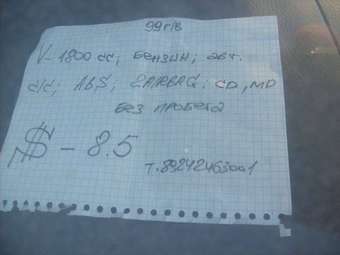 99 г/в
V-1800 cc; бензин; авт.
c/c; ABS; 2AIRBAG; CD, MD
без пробега
$ - 8.5
т.89242463001